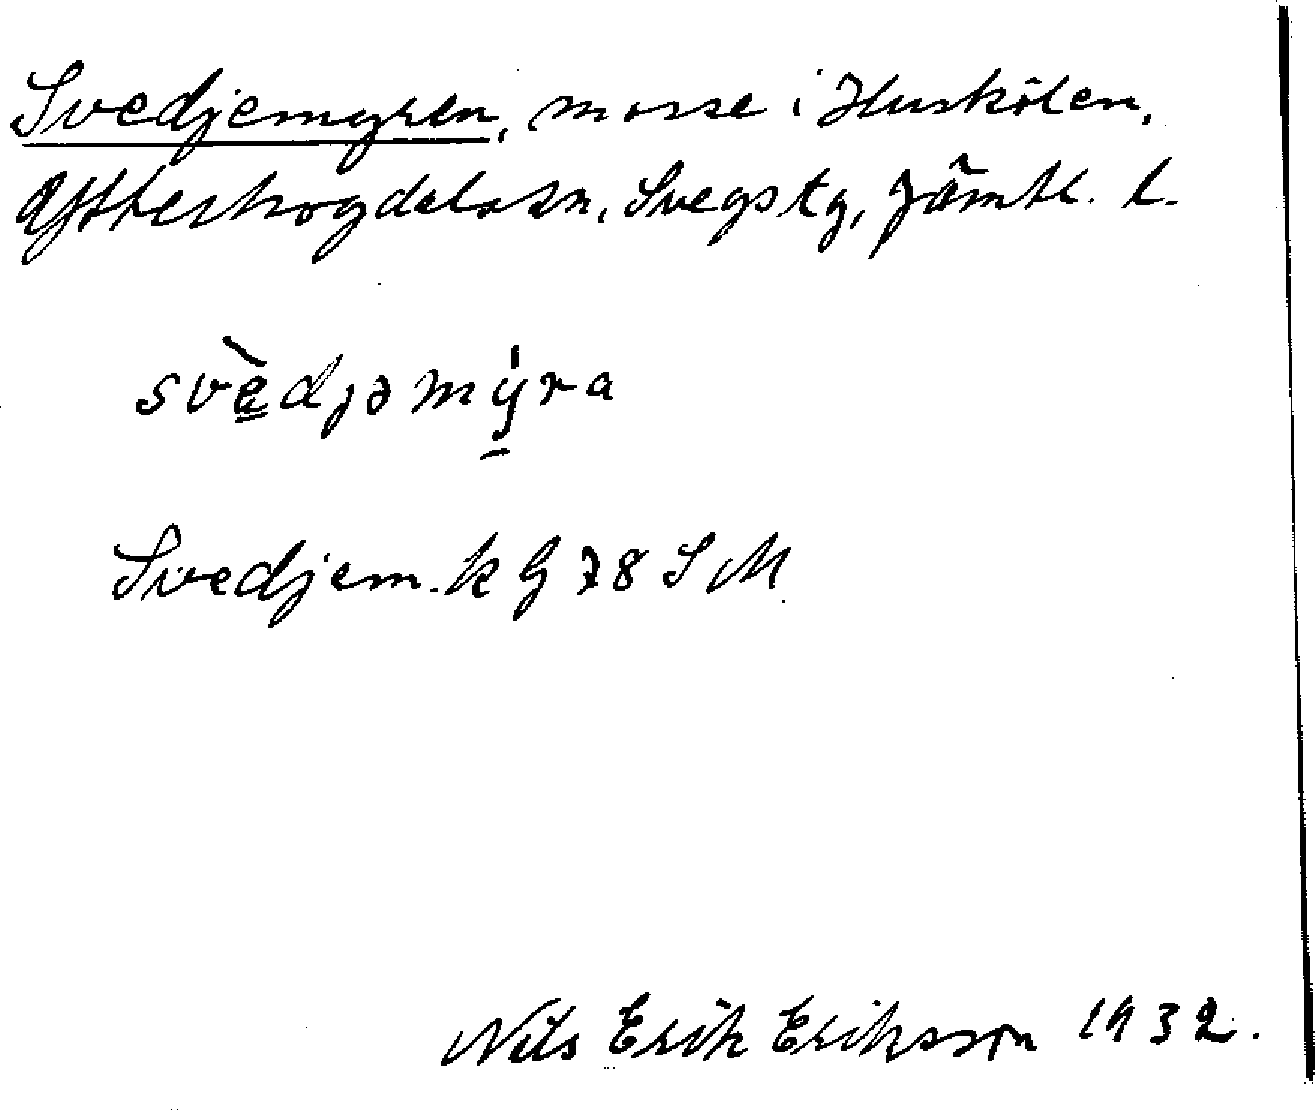 Svedjemyren, mosse i Huskölen,
Ytterhogdals sn, Svegs tg, Jämtl. l.
svèdjəmýra
Svedjem. k G 78 S M
Nils Erik Eriksson 1932.